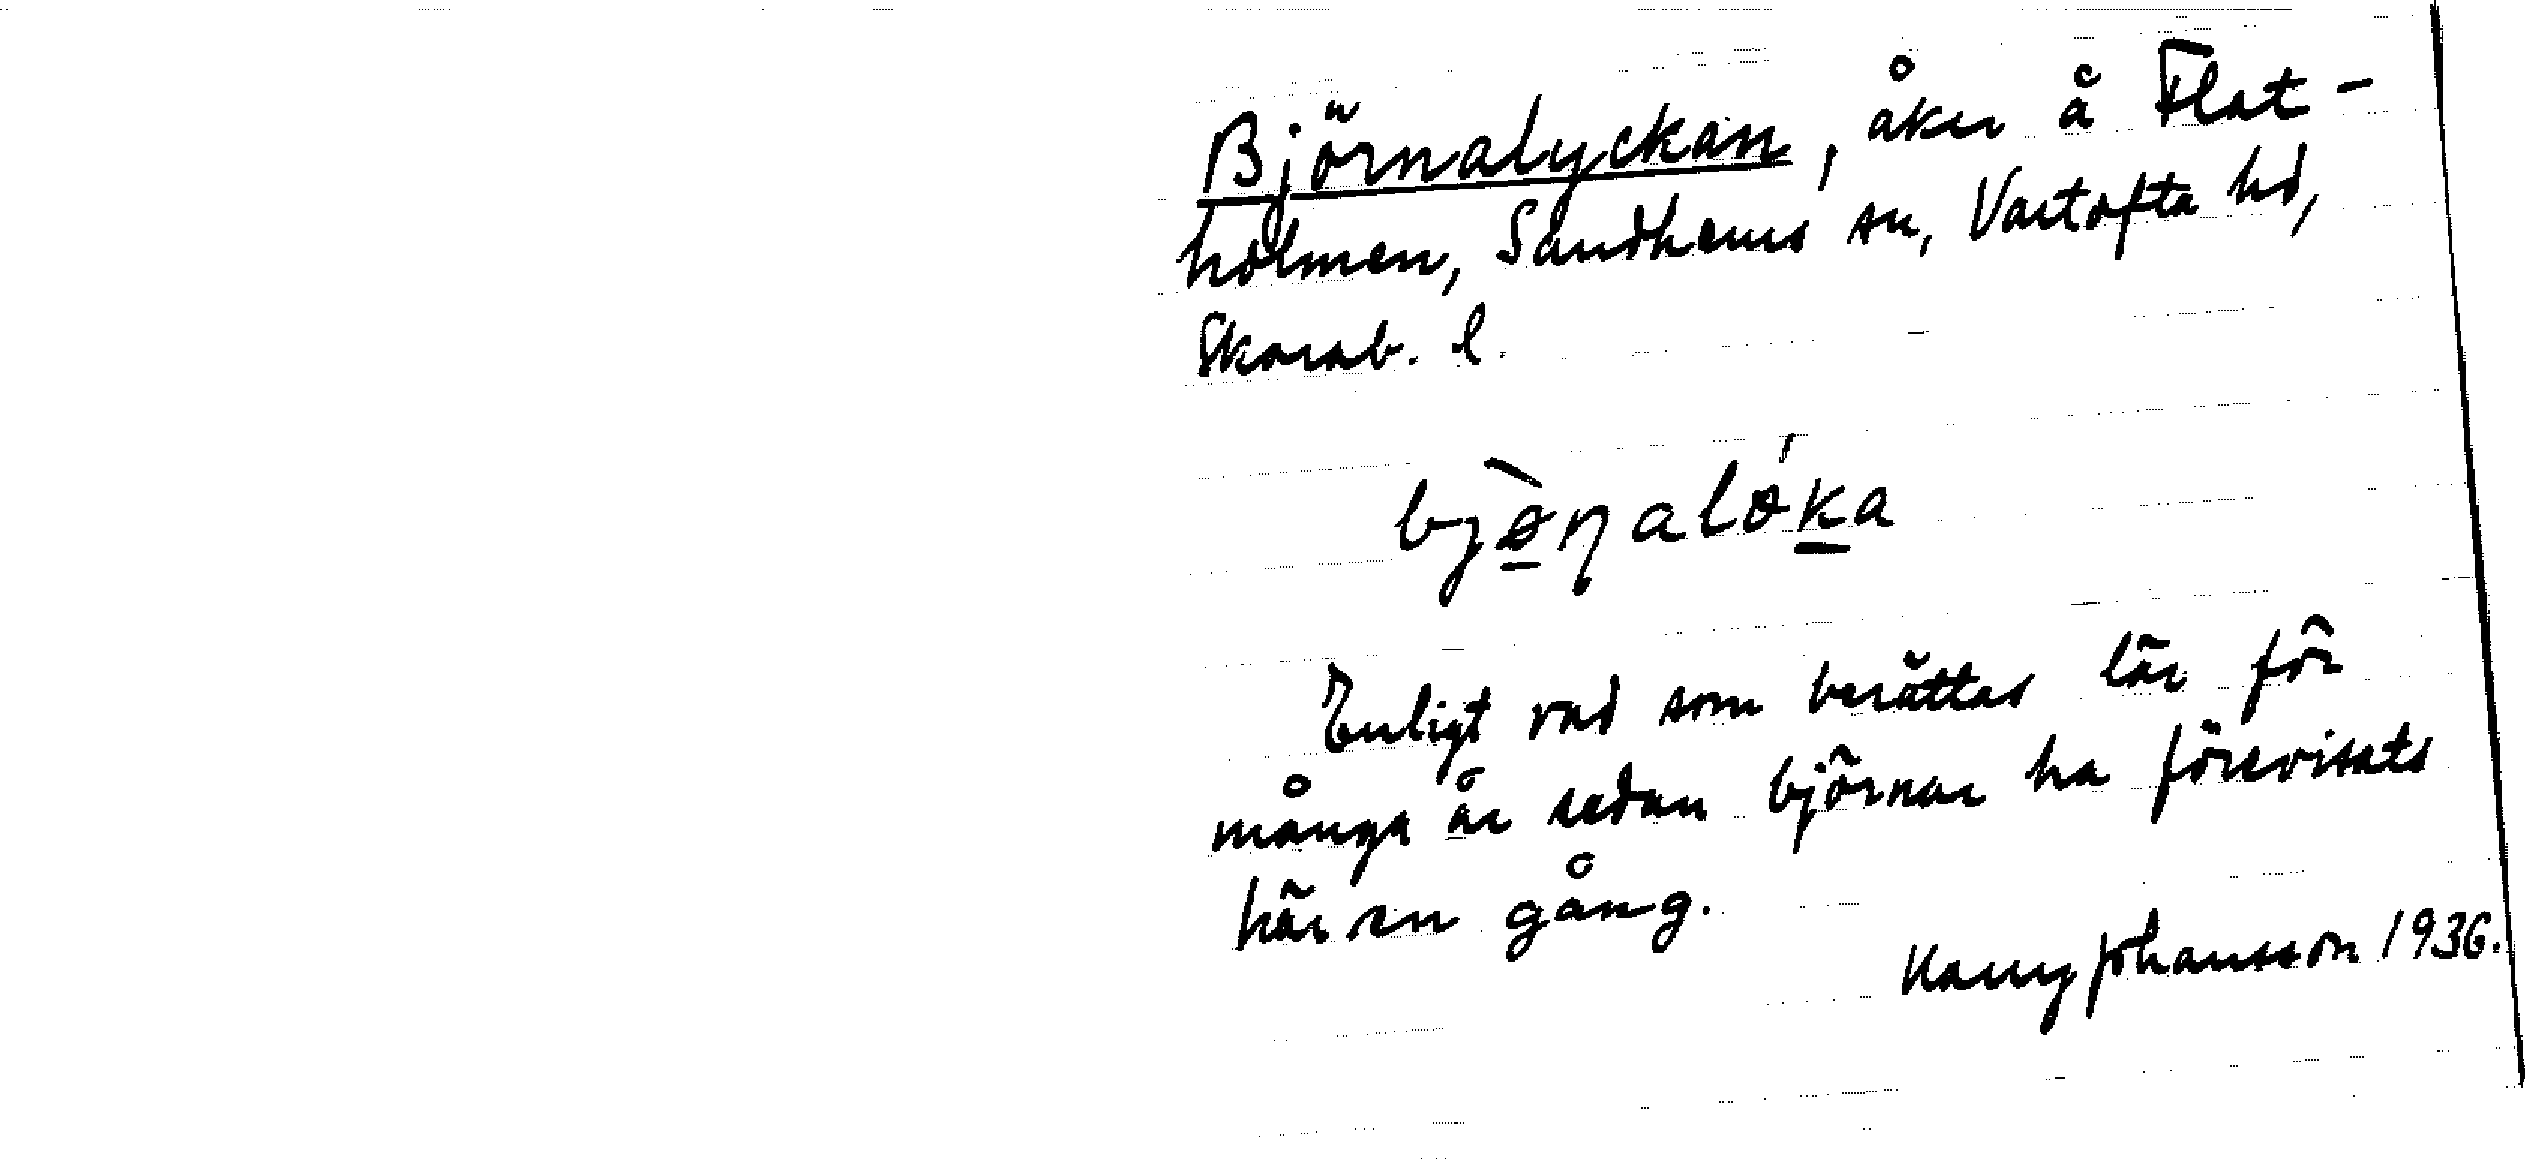 Björnalyckan, åker å Flat-
holmen, Sandhems sn, Vartofta hd,
Skarab. l.
bjø̱̀ɳalǿḵa
Enligt vad som berättas lär för
många år sedan björnar ha förevisats
här en gång.
Harry Johansson 1936.